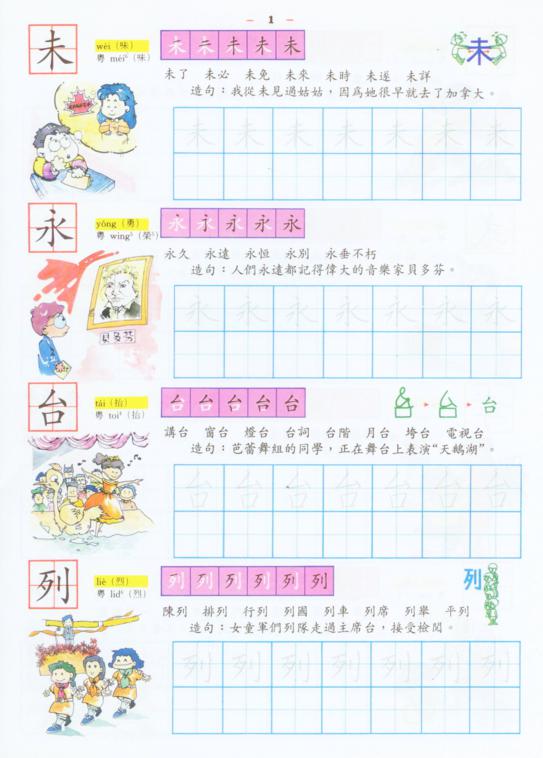 – 1 –
未
wèi（味）
粵 méi⁶（味）
未 未 未 未 未
未
未了 未必 未免 未來 未時 未遂 未詳
造句：我從未見過姑姑，因為她很早就去了加拿大。
未 未 未 未 未 未 未
永
yǒng（勇）
粵 wing⁵（榮⁵）
永 永 永 永 永
永久 永遠 永恒 永別 永垂不朽
造句：人們永遠都記得偉大的音樂家貝多芬。
貝多芬
永 永 永 永 永 永 永
台
tái（抬）
粵 toi⁴（抬）
台 台 台 台 台
台
講台 窗台 燈台 台詞 台階 月台 垮台 電視台
造句：芭蕾舞組的同學，正在舞台上表演“天鵝湖”。
台 台 台 台 台 台 台
列
liè（烈）
粵 lid⁶（烈）
列 列 列 列 列 列
列
陳列 排列 行列 列國 列車 列席 列舉 平列
造句：女童軍們列隊走過主席台，接受檢閱。
列 列 列 列 列 列 列